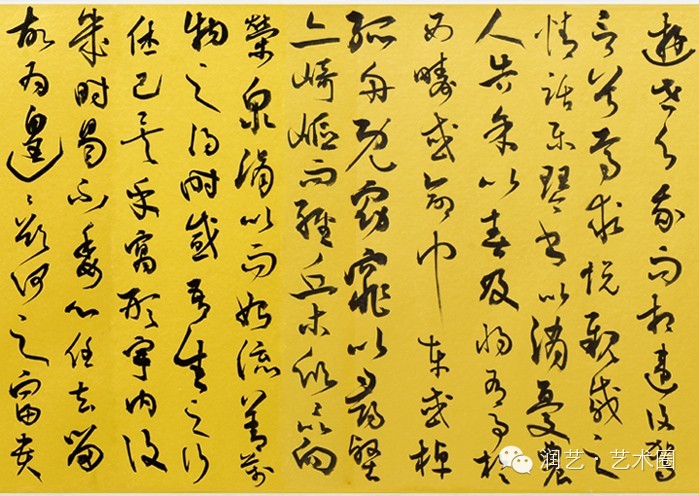 遊世与我而相違復駕
言兮焉求悦親戚之
情話樂琴書以消憂農
人告余以春及将有事於
西疇或命巾車或棹
孤舟既窈窕以尋壑
亦崎嶇而經丘木欣欣以向
榮泉涓涓而始流善萬
物之得時感吾生之行
休已矣乎寓形宇内復
幾時曷不委心任去留
胡為遑遑欲何之富貴
润艺·艺术圈